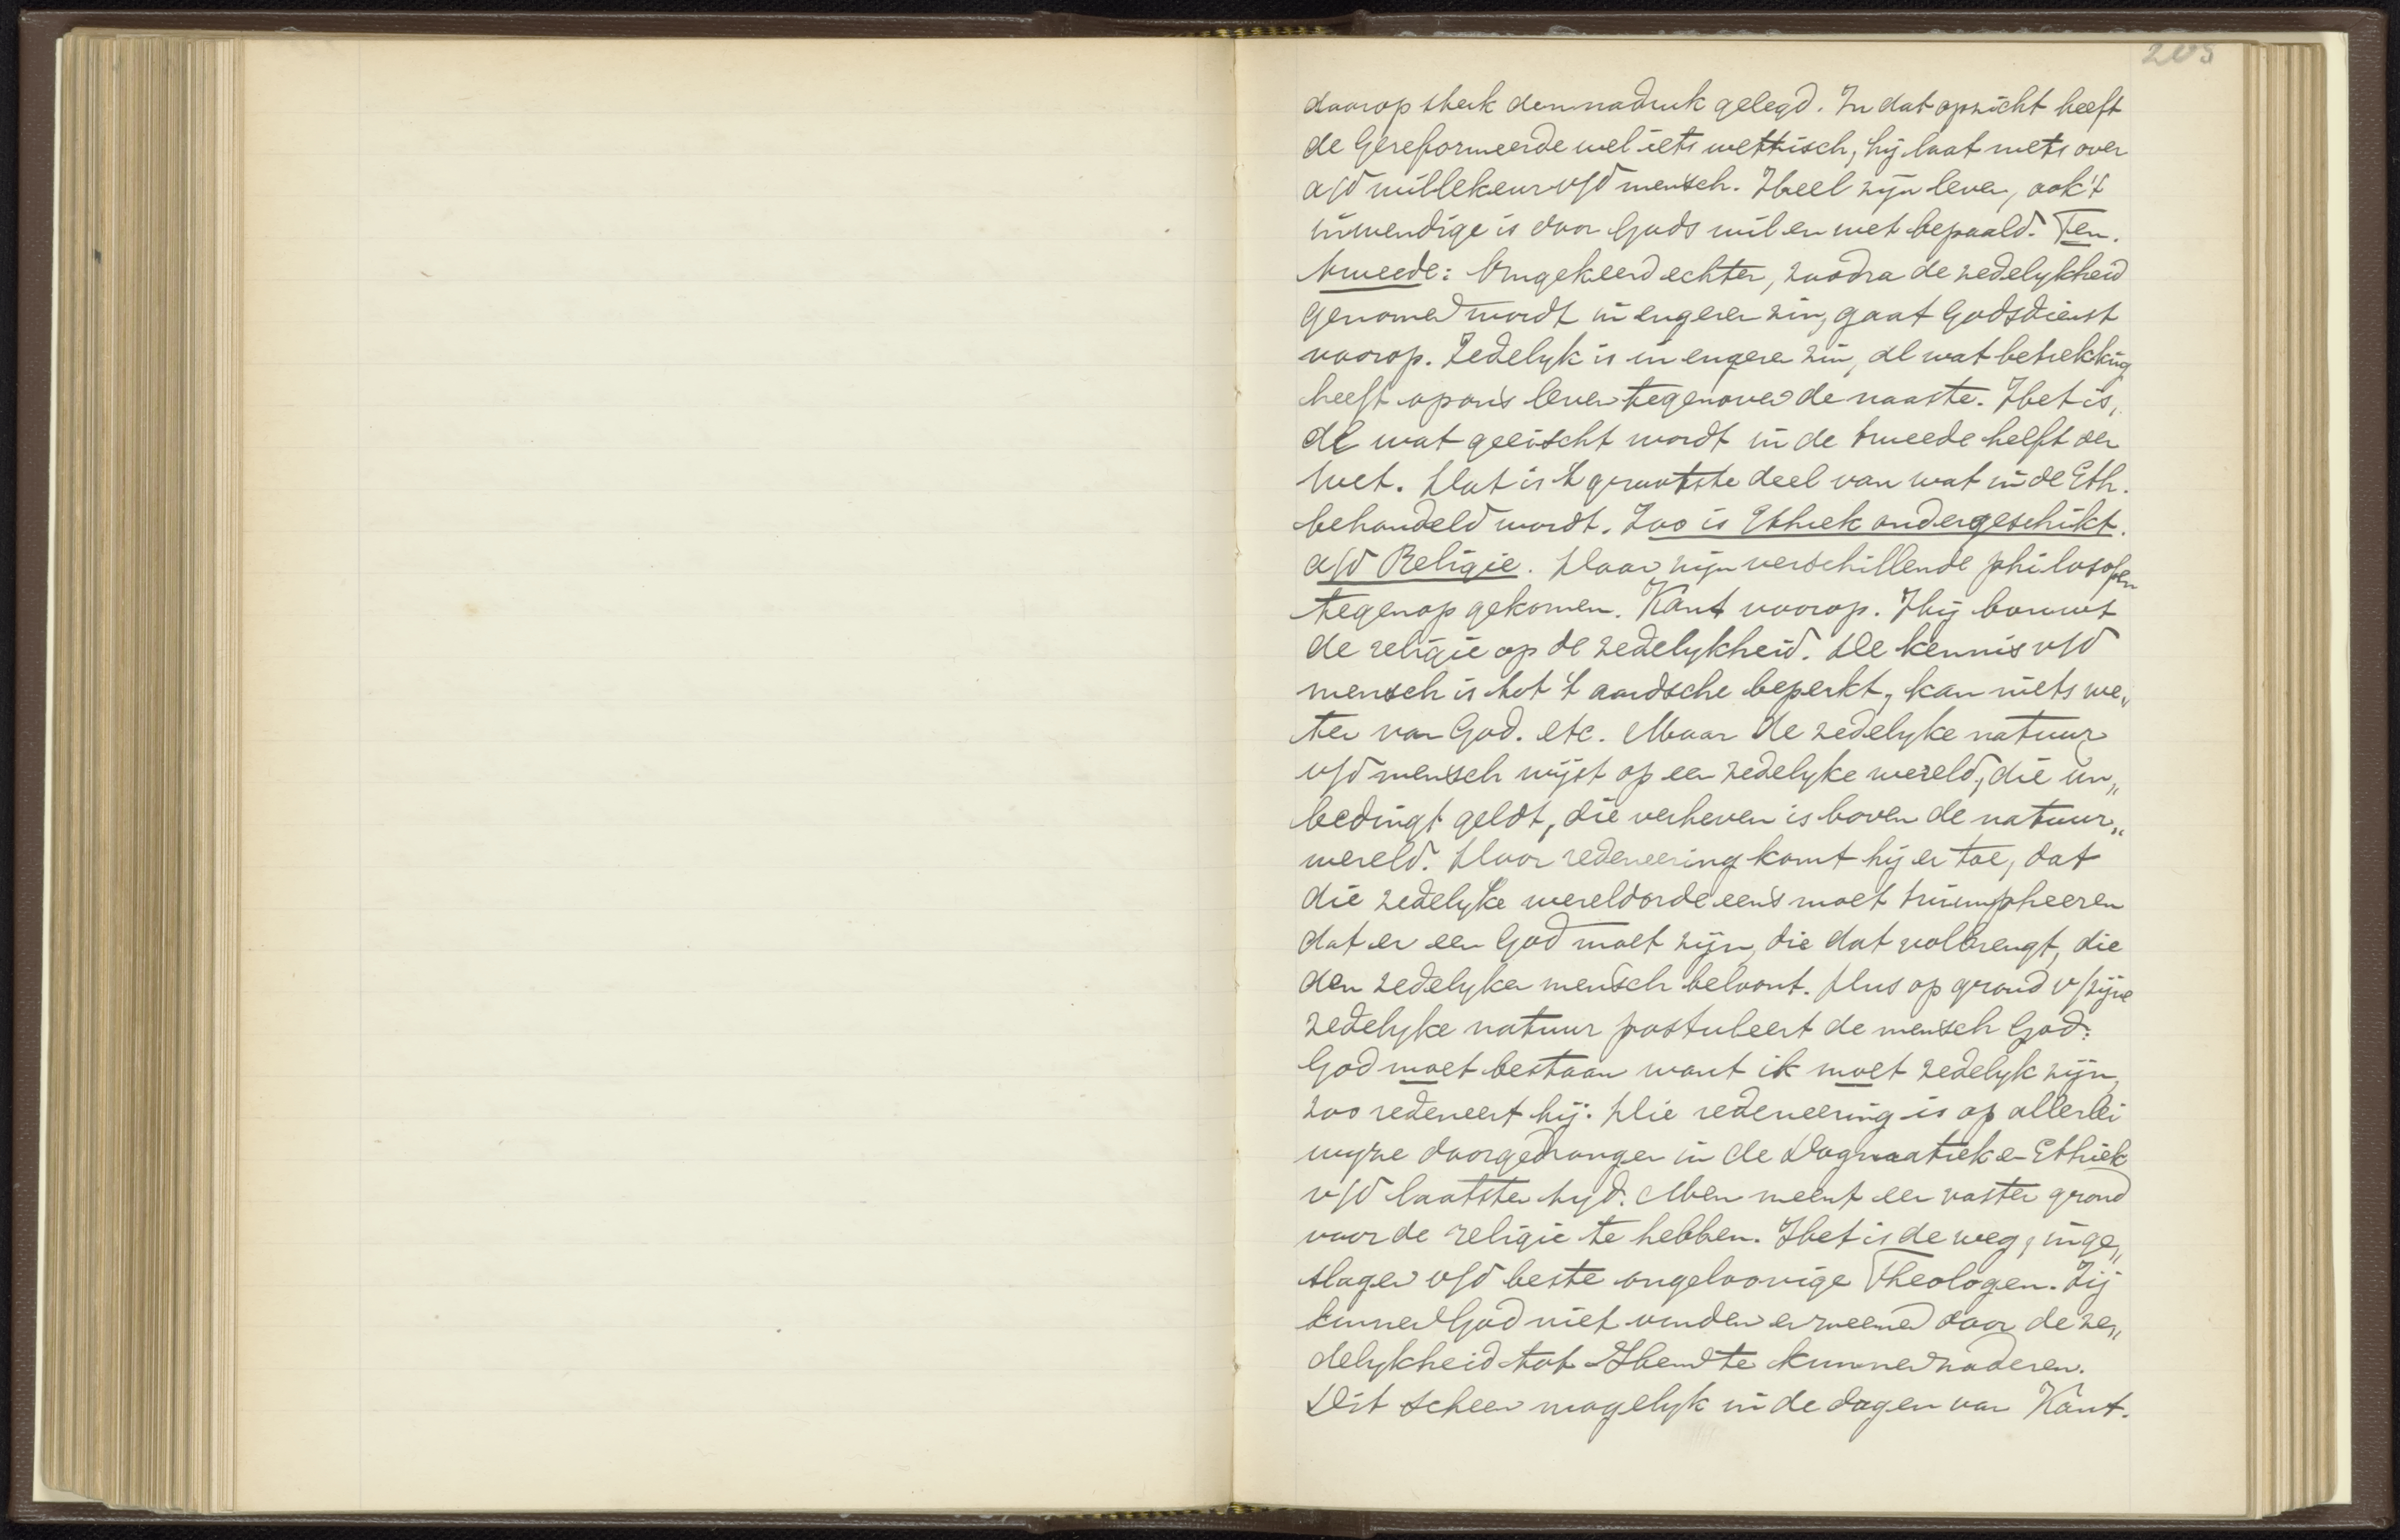 203
daarop sterk den nadruk gelegd. In dat opzicht heeft
de Gereformeerde wel iets wettisch, hij laat niets over
a/d willekeur v/d mensch. Heel zijn leven, ook 't
inwendige is door Gods wil en wet bepaald. Ten.
tweede: Omgekeerd echter, zoodra de zedelykheid
genomen wordt in engeren zin, gaat Godsdienst
voorop. Zedelyk is in engeren zin, al wat betrekking
heeft op ons leven tegenover de naaste. Het is,
al wat geeischt wordt in de tweede helft der
wet. Dat is 't grootste deel van wat in de Eth.
behandeld wordt. Zoo is Ethiek ondergeschikt.
a/d Religie. Daar zijn verschillende philosofen
tegenop gekomen. Kant voorop. Hij bouwt
de religie op de zedelykheid. De kennis v/d
mensch is tot 't aardsche beperkt, kan niets we„
ten van God. etc. Maar de zedelyke natuur
v/d mensch wijst op een zedelyke wereld, die un„
bedingt geldt, die verheven is boven de natuur„
wereld. Door redeneering komt hij er toe, dat
die zedelyke wereldorde eens moet triumpheeren
dat er een God moet zijn, die dat volbrengt, die
den zedelyken mensch beloont. Dus op grond v/zijne
zedelyke natuur postuleert de mensch God:
God moet bestaan want ik moet zedelyk zijn,
zoo redeneert hij. Die redeneering is op allerlei
wyze doorgedrongen in de Dogmatiek en Ethiek
v/d laatsten tyd. Men meent een vasten grond
voor de religie te hebben. Het is de weg, inge„
slagen v/d beste ongeloovige Theologen. Zij
kunnen God niet vinden en meenen door de ze„
delykheid tot Hem te kunnen naderen.
Dit scheen mogelyk in de dagen van Kant.